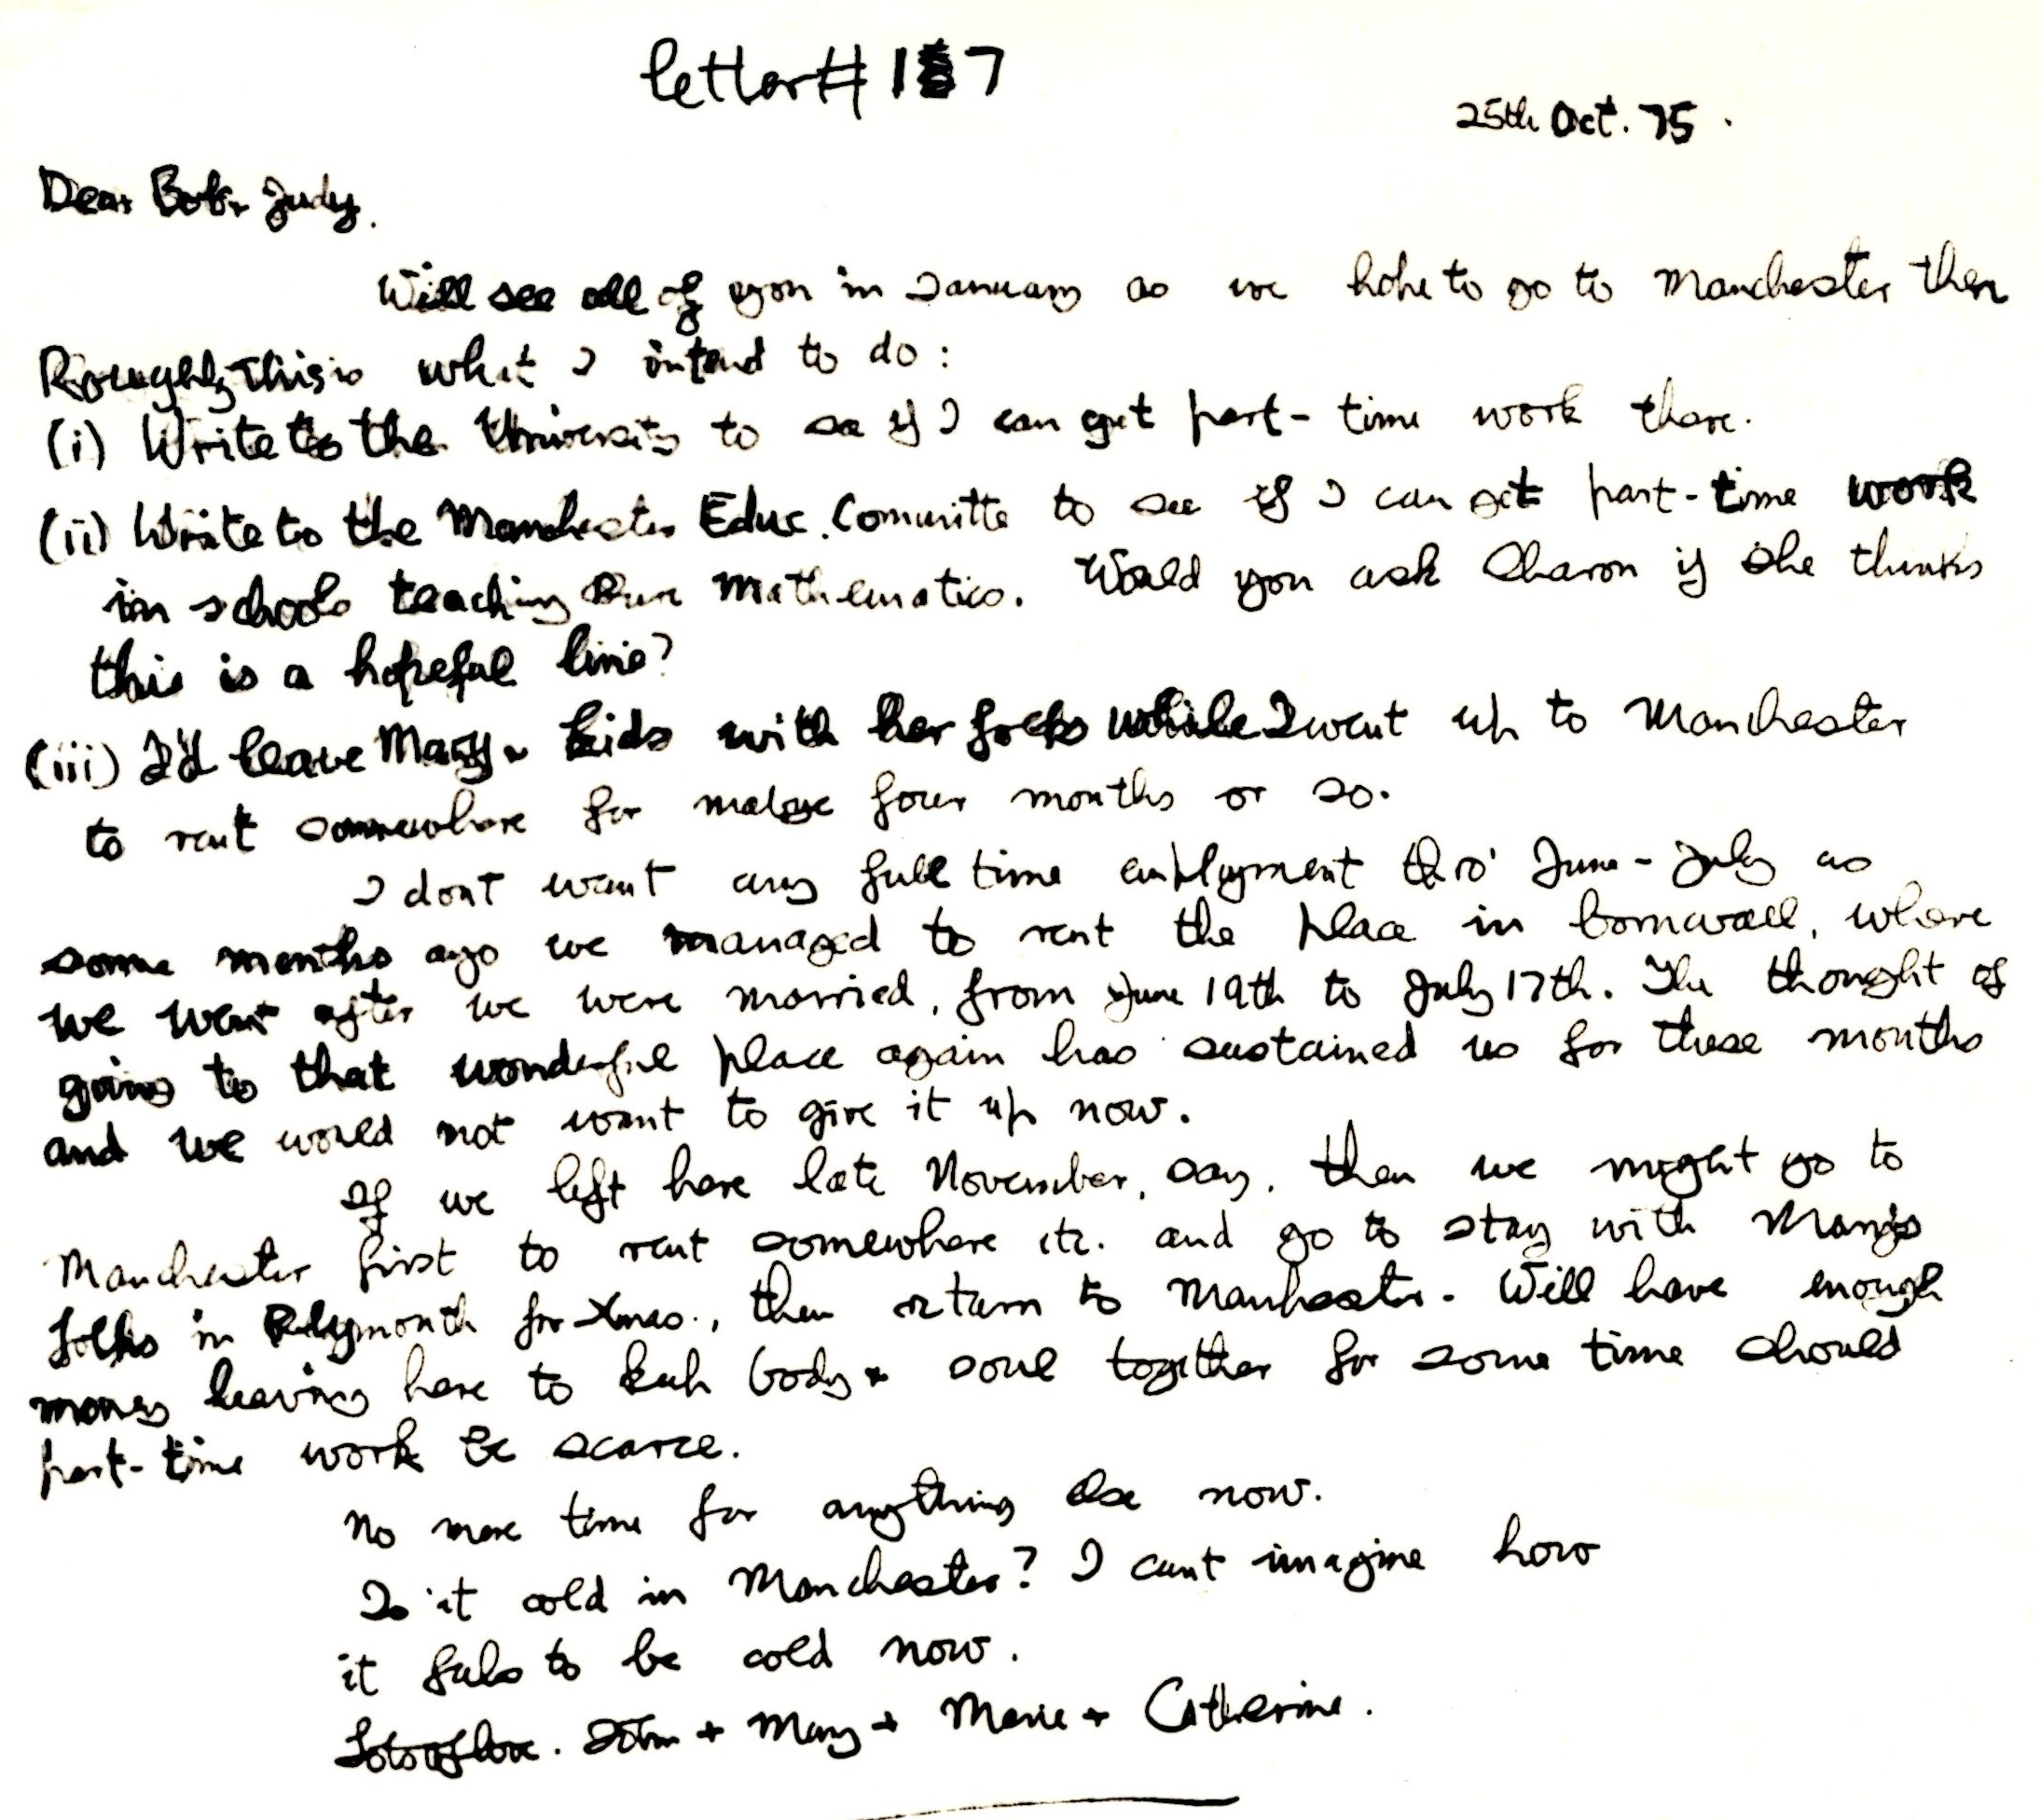 letter # 17
25th Oct. 75.
Dear Bob + Judy.
Will see all of you in January as we hope to go to Manchester then
Roughly this is what I intend to do:
(i) Write to the University to see if I can get part-time work there.
(ii) Write to the Manchester Educ. Committe to see if I can get part-time work
in schools teaching Pure Mathematics. Would you ask Sharon if she thinks
this is a hopeful line?
(iii) I'd leave Mary + kids with her folks while I went up to Manchester
to rent somewhere for maybe four months or so.
I dont want any full time employment thro' June - July as
some months ago we managed to rent the place in Cornwall, where
we went after we were married, from June 19th to July 17th. The thought of
going to that wonderful place again has sustained us for these months
and we would not want to give it up now.
If we left here late November, say, then we might go to
Manchester first to rent somewhere etc. and go to stay with Mary's
folks in Plymouth for Xmas., then return to Manchester. Will have enough
money leaving here to keep body + soul together for some time should
part-time work be scarce.
No more time for anything else now.
Is it cold in Manchester? I cant imagine how
it feels to be cold now.
Lots of love. John + Mary + Marie + Catherine.